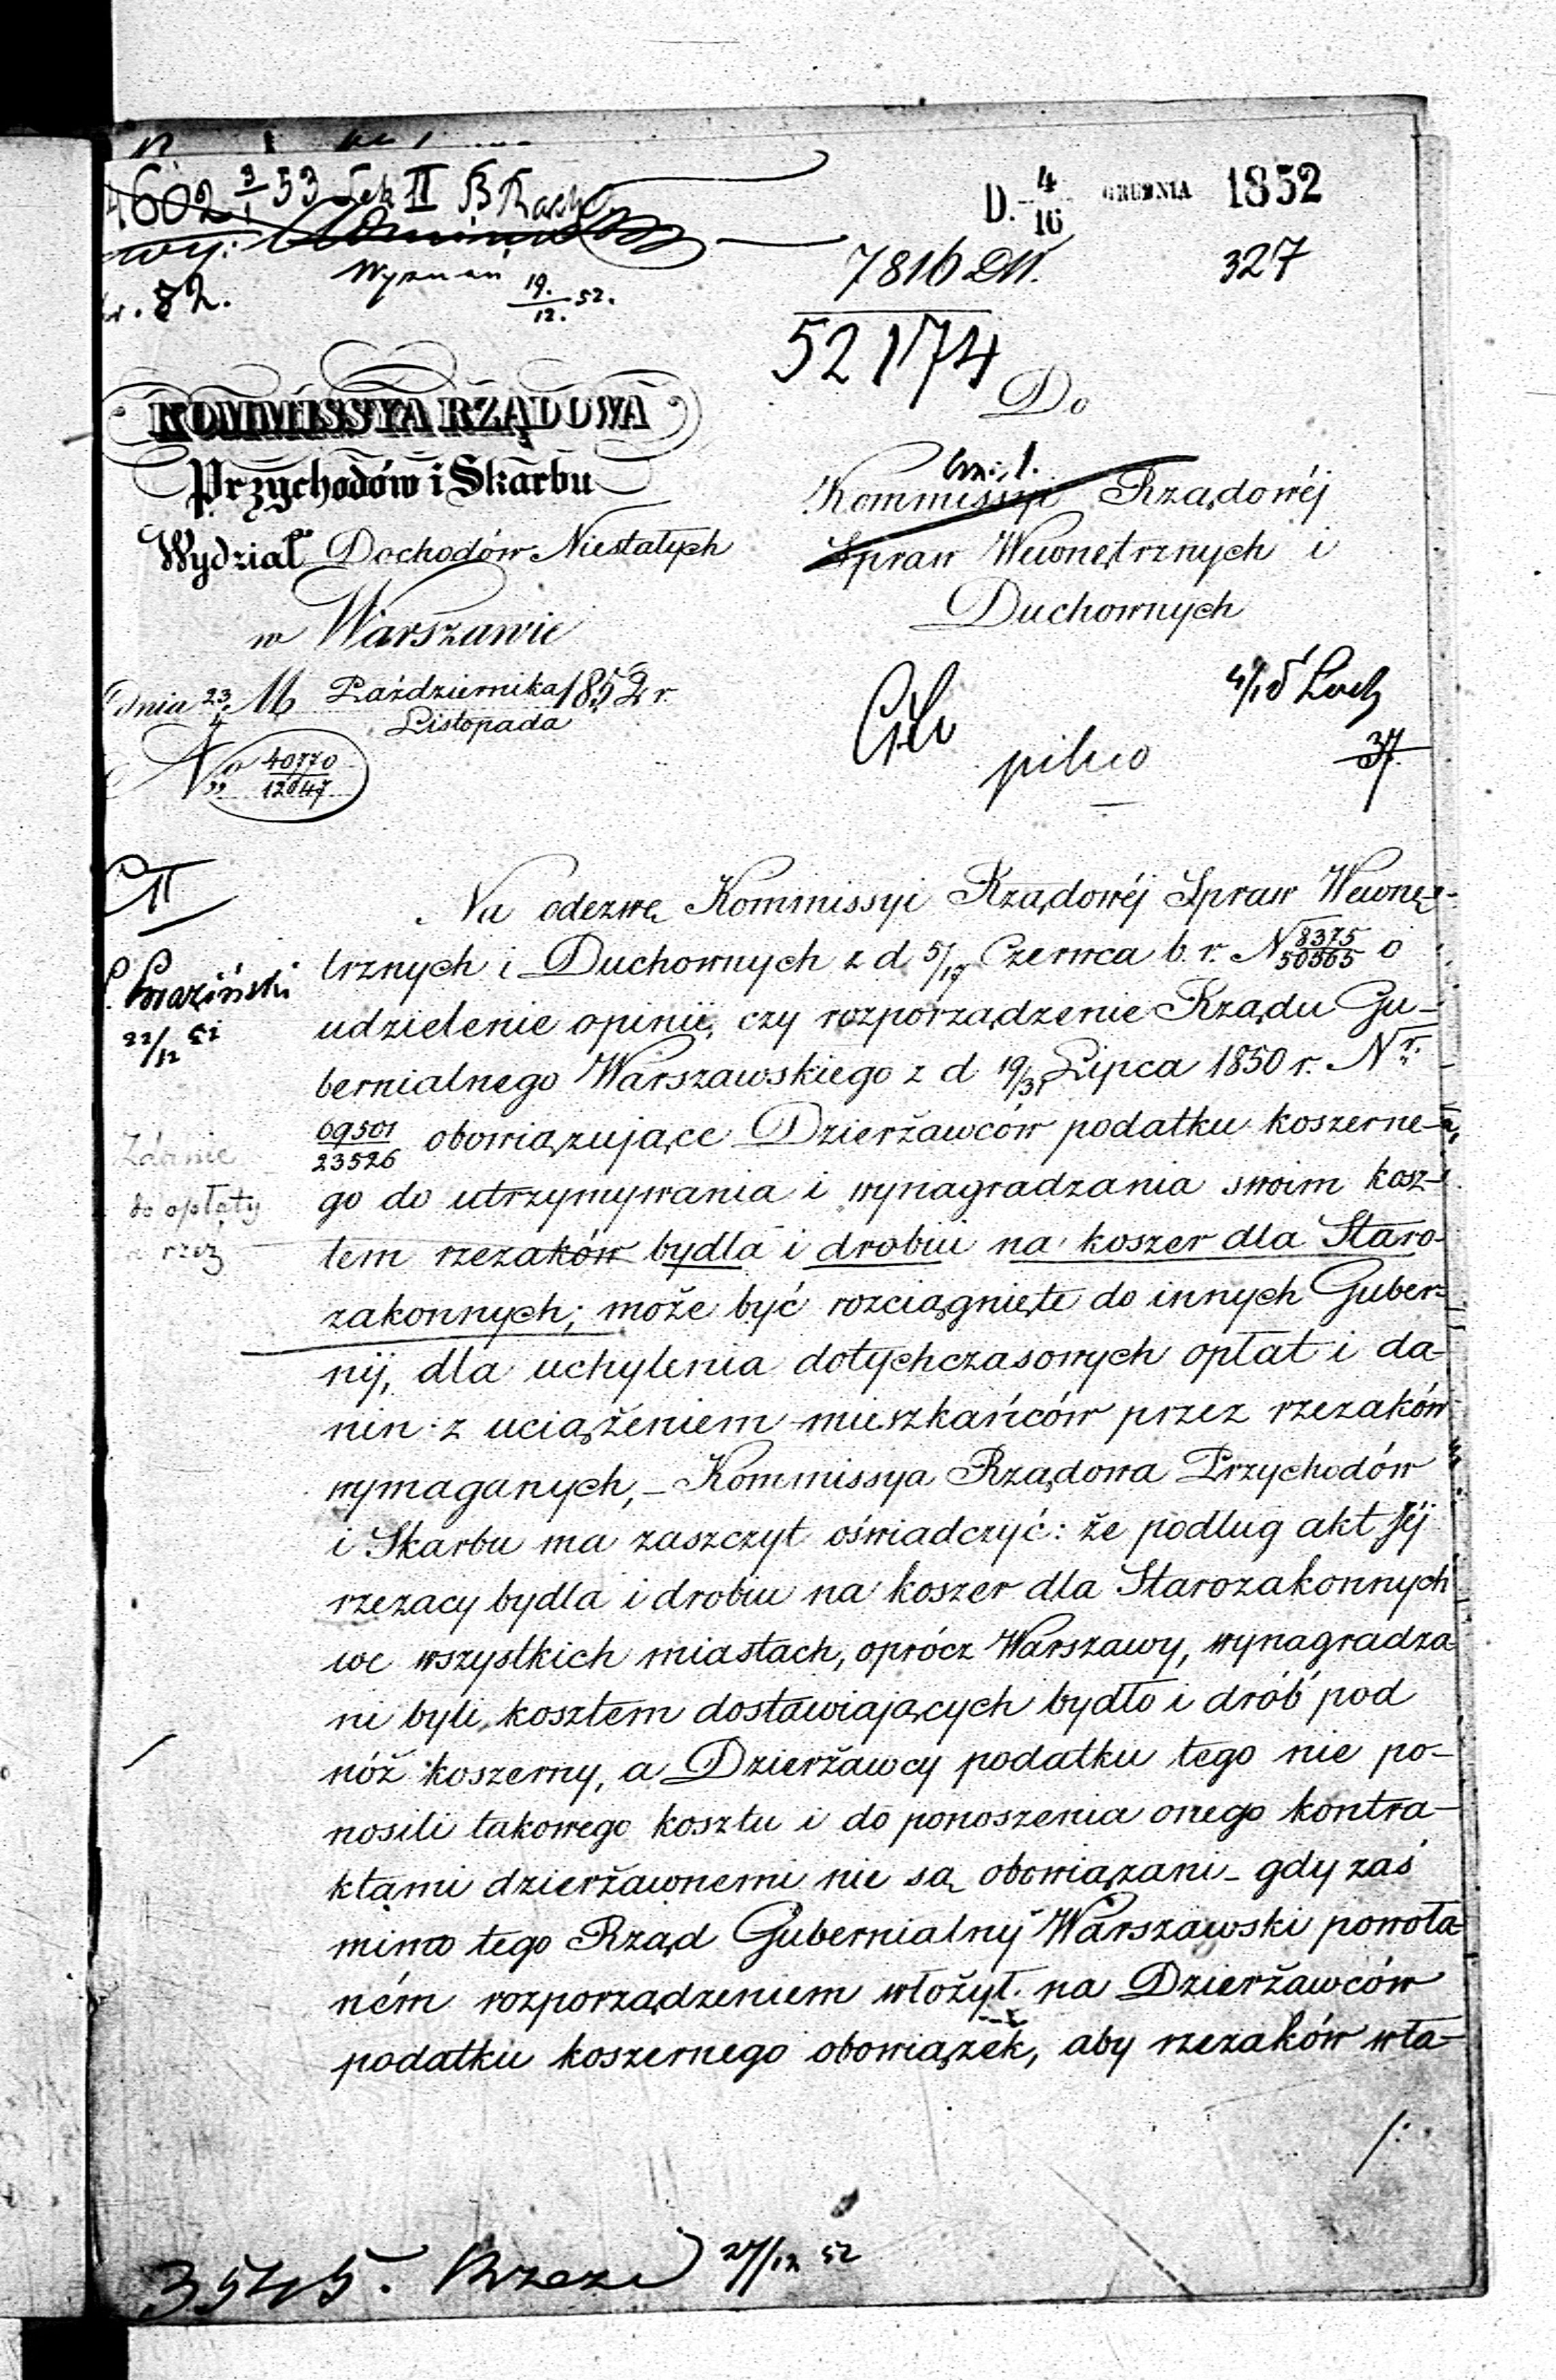 4602 3/1 53 Sek II
Wyznań 19./12. 52.
82.
D. 4/16 GRUDNIA 1852
7816 327
52174
KOMMISSYA RZĄDOWA
Przychodów i Skarbu
Wydział Dochodów Niestałych
w Warszawie
Dnia 23/4 M Października/Listopada 1852 r.
N° 40770/12647
Do
Kommissyi Rządowéj
Spraw Wewnętrznych i
Duchownych
pilno
37
II
22/12 52
Na odezwę Kommissyi Rządowéj Spraw Wewnę-
trznych i Duchownych z d 5/17 Czerwca b. r. N 8375/50565 o
udzielenie opinii, czy rozporządzenie Rządu Gu-
bernialnego Warszawskiego z d 19/31 Lipca 1850 r. Nr.
69501/23526 obowiązujące Dzierżawców podatku koszerne-
go do utrzymywania i wynagradzania swoim kosz-
tem rzezaków bydła i drobiu na koszer dla Staro-
zakonnych; może być rozciągnięte do innych Guber-
nij, dla uchylenia dotychczasowych opłat i da-
nin z uciążeniem mieszkańców przez rzezaków
wymaganych, – Kommissya Rządowa Przychodów
i Skarbu ma zaszczyt oświadczyć: że podług akt Jéj
rzezacy bydła i drobiu na koszer dla Starozakonnych
we wszystkich miastach, oprócz Warszawy, wynagradza
ni byli kosztem dostawiających bydło i drób pod
nóż koszerny, a Dzierżawcy podatku tego nie po-
nosili takowego kosztu i do ponoszenia onego kontra-
ktami dzierżawnemi nie są obowiązani – gdy zaś
mimo tego Rząd Gubernialny Warszawski powoła-
ném rozporządzeniem włożył na Dzierżawców
podatku koszernego obowiązek, aby rzezaków wła-
Zdanie
do opłaty
rzez
/:
3545. 27/12 52